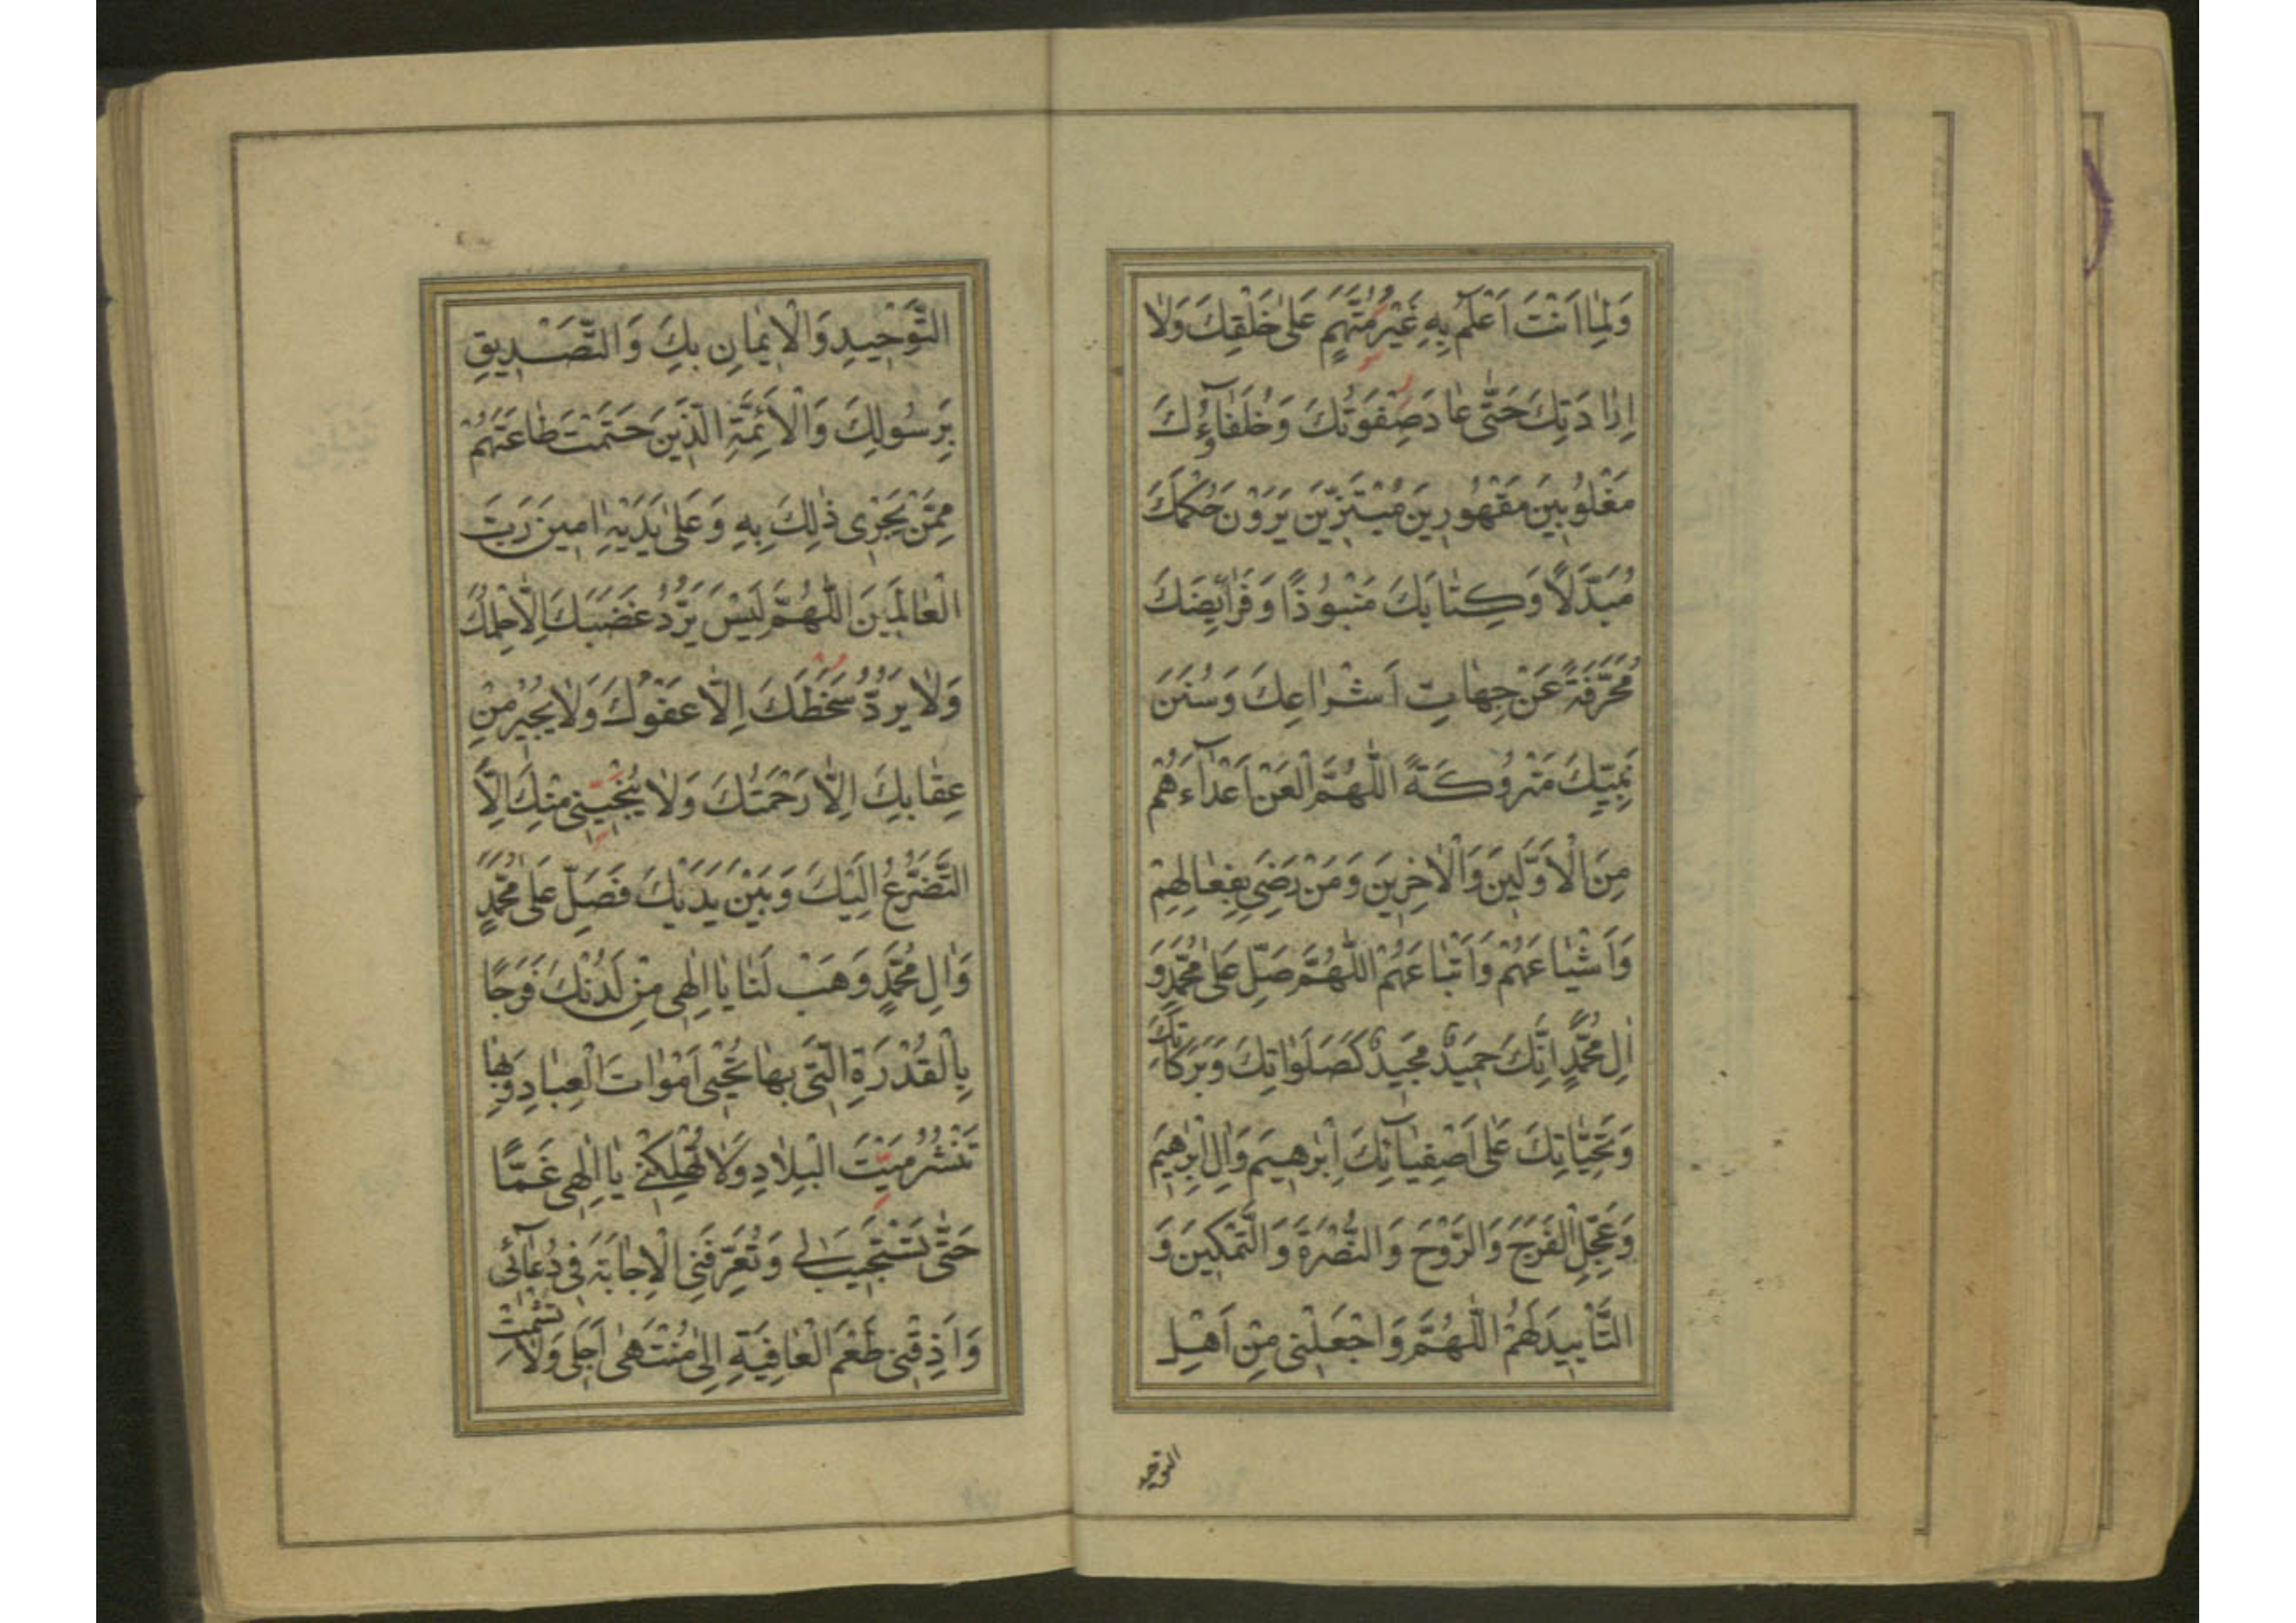 وَلِمٰا اَنْتَ اَعْلَمُ بِهِ غَيْرُ مُتَّهَمٍ عَلىٰ خَلْقِكَ وَلاٰ
اِرٰادَتِكَ حَتّٰى عٰادَ صِفْوَتُكَ وَخُلَفٰآؤُكَ
مَغْلُوبِينَ مَقْهُورِينَ مُبْتَزِّينَ يَرَوْنَ حُكْمَكَ
مُبَدَّلاً وَكِتٰابَكَ مَنْبُوذًا وَفَرٰايِضَكَ
مُحَرَّفَةً عَنْ جِهٰاتِ اَشْرٰاعِكَ وَسُنَنَ
نَبِيِّكَ مَتْرُوكَةً اَللّٰهُمَّ الْعَنْ اَعْدٰآءَهُمْ
مِنَ الْاَوَّلِينَ وَالْاٰخِرِينَ وَمَنْ رَضِيَ بِفِعٰالِهِمْ
وَاَشْيٰاعَهُمْ وَاَتْبٰاعَهُمْ اَللّٰهُمَّ صَلِّ عَلىٰ مُحَمَّدٍ وَ
اٰلِ مُحَمَّدٍ اِنَّكَ حَمِيدٌ مَجِيدٌ كَصَلَوٰاتِكَ وَبَرَكٰاتِكَ
وَتَحِيّٰاتِكَ عَلىٰ اَصْفِيٰآئِكَ اِبْرٰهِيمَ وَاٰلِ اِبْرٰهِيمَ
وَعَجِّلِ الْفَرَجَ وَالرَّوْحَ وَالنُّصْرَةَ وَالتَّمْكِينَ وَ
التَّأْيِيدَ لَهُمْ اَللّٰهُمَّ وَاجْعَلْنِى مِنْ اَهْلِ
التوحيد
التَّوْحِيدِ وَالْاِيمٰانِ بِكَ وَالتَّصْدِيقِ
بِرَسُولِكَ وَالْاَئِمَّةِ الَّذِينَ حَتَمْتَ طٰاعَتَهُمْ
مِمَّنْ يَجْرِى ذٰلِكَ بِهِ وَعَلىٰ يَدَيْهِ اٰمِينَ رَبَّ
الْعٰالَمِينَ اَللّٰهُمَّ لَيْسَ يَرُدُّ غَضَبَكَ اِلاّٰ حِلْمُكَ
وَلاٰ يَرُدُّ سَخَطَكَ اِلاّٰ عَفْوُكَ وَلاٰ يُجِيرُ مِنْ
عِقٰابِكَ اِلاّٰ رَحْمَتُكَ وَلاٰ يُنْجِينِى مِنْكَ اِلاَّ
التَّضَرُّعُ اِلَيْكَ وَبَيْنَ يَدَيْكَ فَصَلِّ عَلىٰ مُحَمَّدٍ
وَاٰلِ مُحَمَّدٍ وَهَبْ لَنٰا يٰا اِلٰهِى مِنْ لَدُنْكَ فَرَجًا
بِالْقُدْرَةِ الَّتِى بِهٰا تُحْيِى اَمْوٰاتَ الْعِبٰادِ وَبِهٰا
تَنْشُرُ مَيْتَ الْبِلاٰدِ وَلاٰ تُهْلِكْنِى يٰا اِلٰهِى غَمًّا
حَتّٰى تَسْتَجِيبَ لِى وَتُعَرِّفَنِى الْاِجٰابَةَ فِى دُعٰآئِى
وَاَذِقْنِى طَعْمَ الْعٰافِيَةِ اِلىٰ مُنْتَهىٰ اَجَلِى وَلاٰ تُشْمِتْ